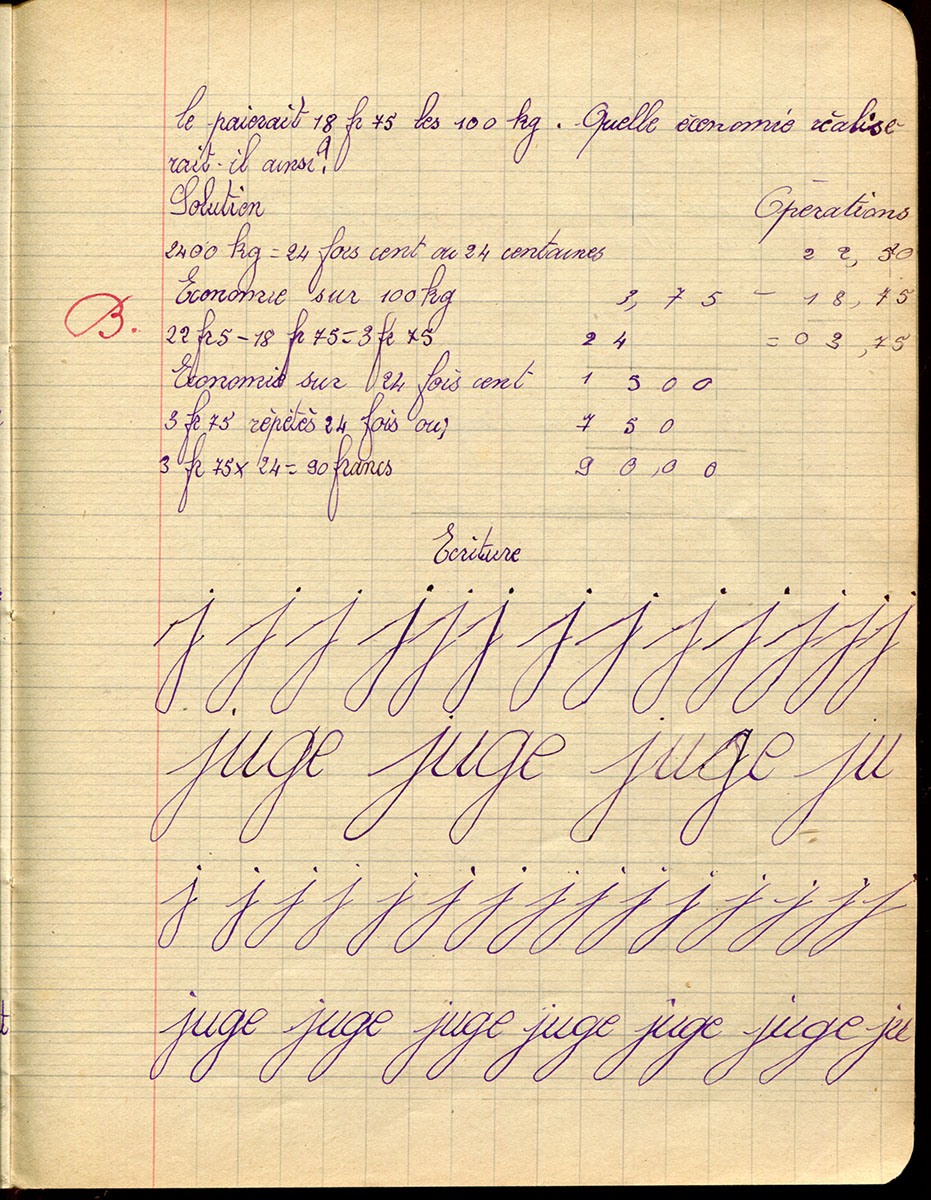 le paierait 18 fr 75 les 100 kg. Quelle économie réalise-
rait-il ainsi?
Solution
Opérations
2400 kg = 24 fois cent ou 24 centaines
22,50
Economie sur 100 kg
3,75
- 18,75
B.
22 fr 5 - 18 fr 75 = 3 fr 75
24
= 03,75
Economie sur 24 fois cent
1500
3 fr 75 répétés 24 fois ou;
750
3 fr 75 x 24 = 90 francs
90,00
Ecriture
j j j j j j j j j j j j j
juge juge juge ju
j j j j j j j j j j j j j j
juge juge juge juge juge juge ju